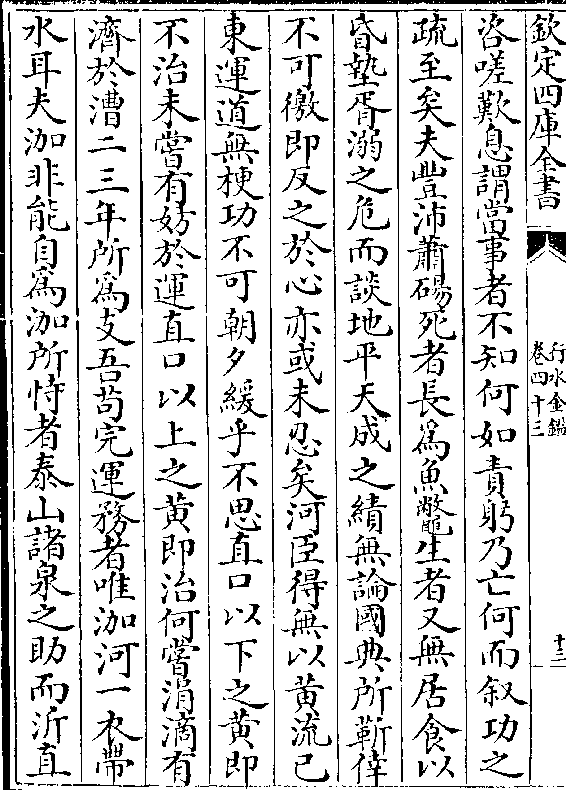 欽定四庫全書
行水金鑑
卷四十三
十三
咨嗟歎息謂當事者不知何如責躬乃亡何而叙功之
疏至矣夫豐沛蕭碭死者長爲魚鼈生者又無居食以
昏墊胥溺之危而談地平天成之績無論國典所靳倖
不可徼即反之於心亦或未忍矣河臣得無以黄流已
東運道無梗功不可朝夕緩乎不思直口以下之黄即
不治未嘗有妨於運直口以上之黄即治何嘗涓滴有
濟於漕二三年所爲支吾苟完運務者唯泇河一衣帶
水耳夫泇非能自爲泇所恃者泰山諸泉之助而沂直